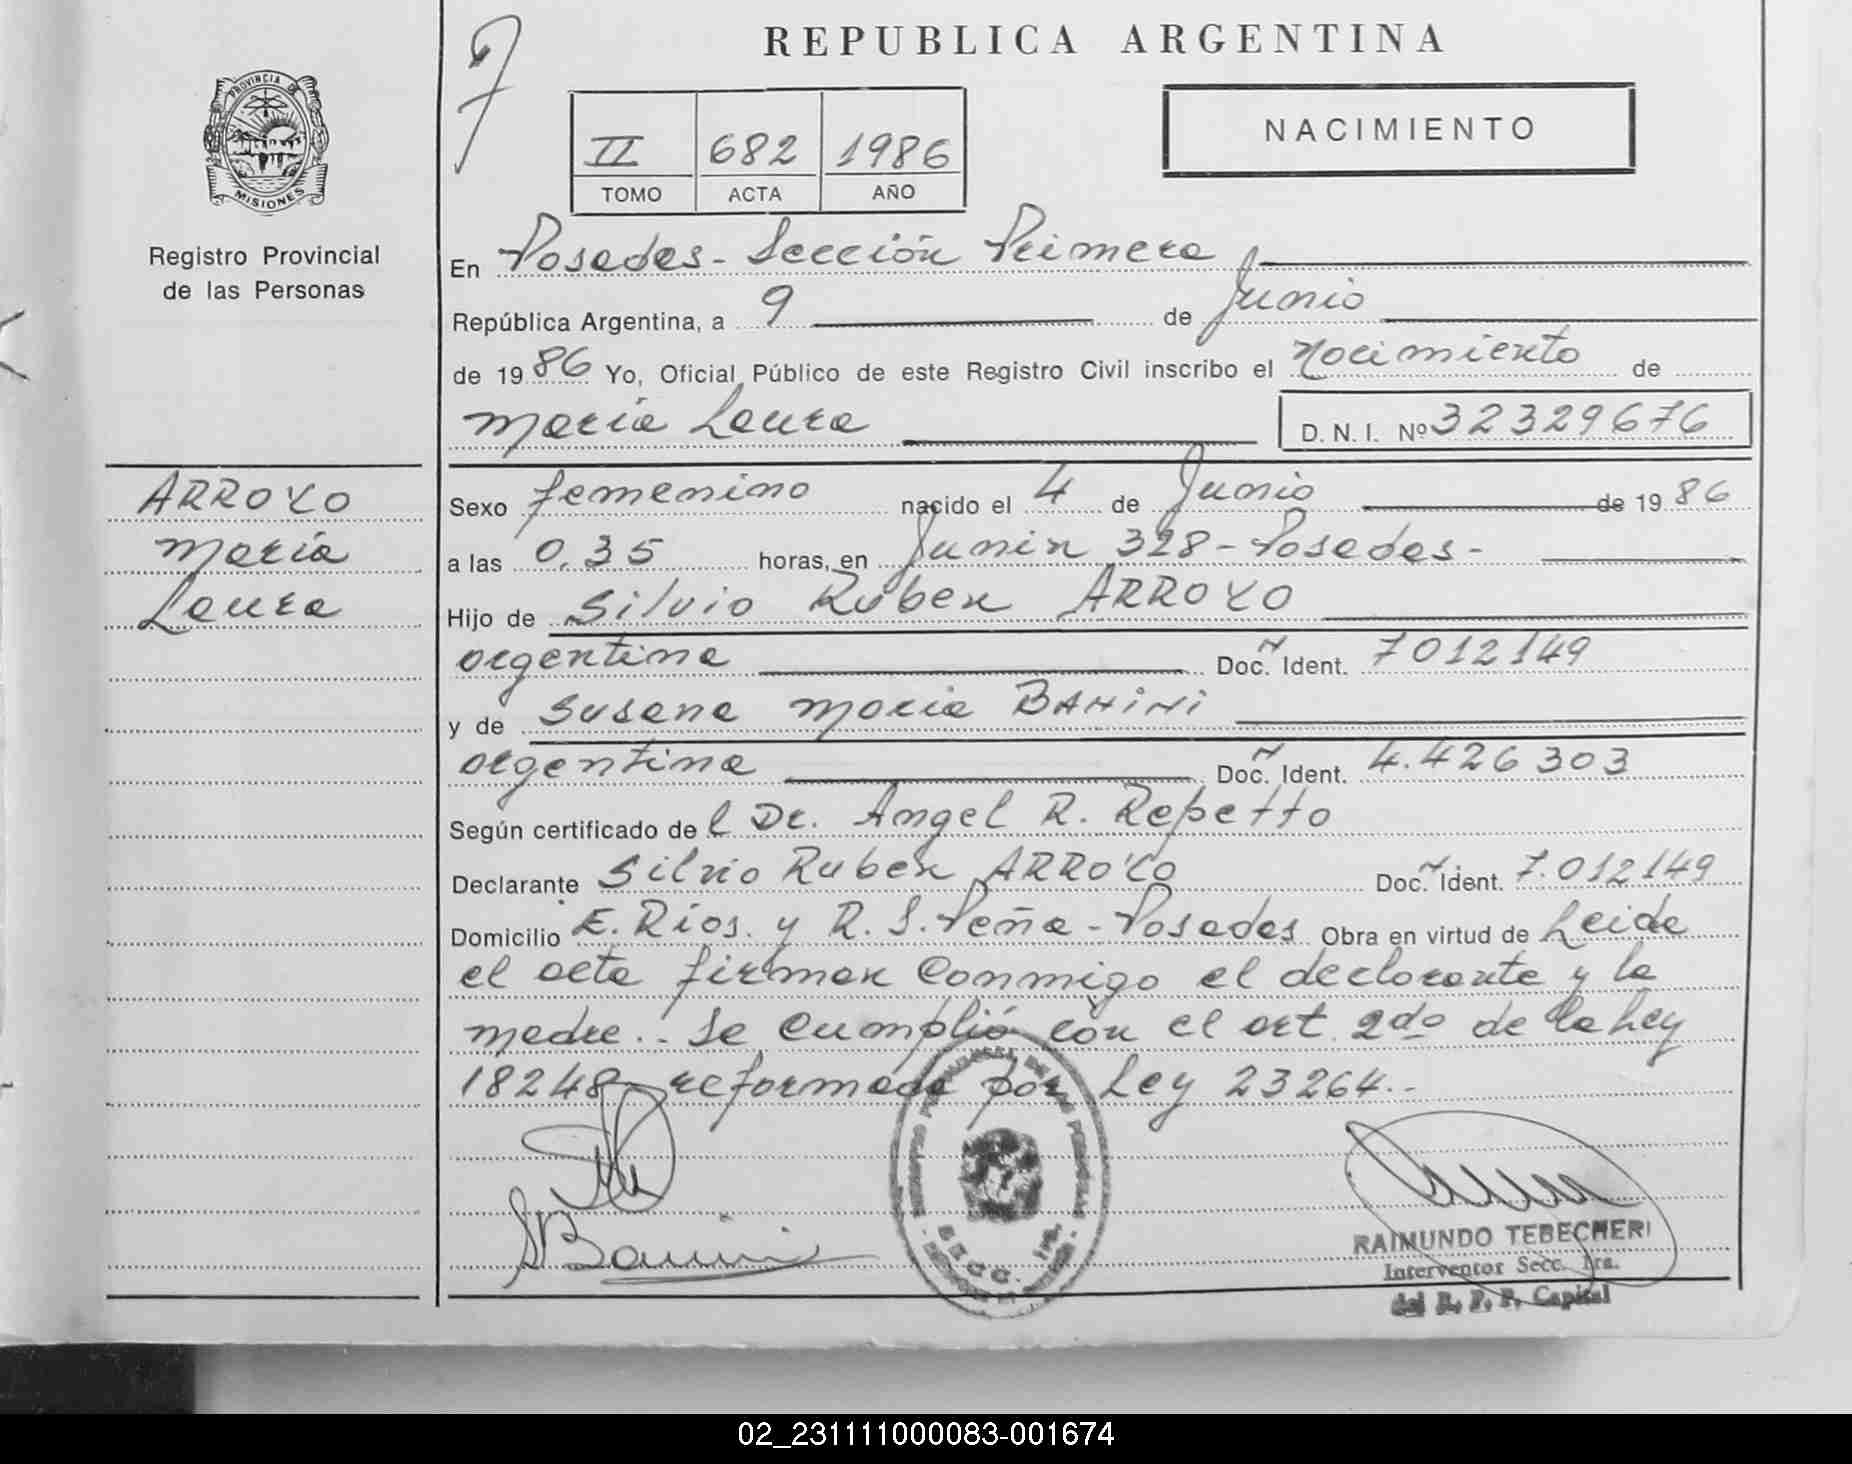 REPUBLICA ARGENTINA
PROVINCIA DE
MISIONES
Registro Provincial
de las Personas
II 682 1986
TOMO ACTA AÑO
NACIMIENTO
En Posadas - Sección Primera
República Argentina, a 9 de Junio
de 1986 Yo, Oficial Público de este Registro Civil inscribo el nacimiento de
María Laura D. N. I. Nº 32329676
ARROYO
María
Laura
Sexo femenino nacido el 4 de Junio de 1986
a las 0,35 horas, en Junin 328 - Posadas -
Hijo de Silvio Ruben ARROYO
argentina Doc. Ident. 7012149
y de Susana María BANINI
argentina Doc. Ident. 4.426303
Según certificado del Dr. Angel R. Repetto
Declarante Silvio Ruben ARROYO Doc. Ident. 7.012149
Domicilio E. Ríos. y R. S. Peña - Posadas Obra en virtud de Leida
el acta firman conmigo el declarante y la
madre.. Se cumplió con el art. 2do de la Ley
18248 reformada por Ley 23264..
SBanini
RAIMUNDO TEBECHERI
Interventor Secc. 1ra.
del R. P. P. Capital
02_231111000083-001674